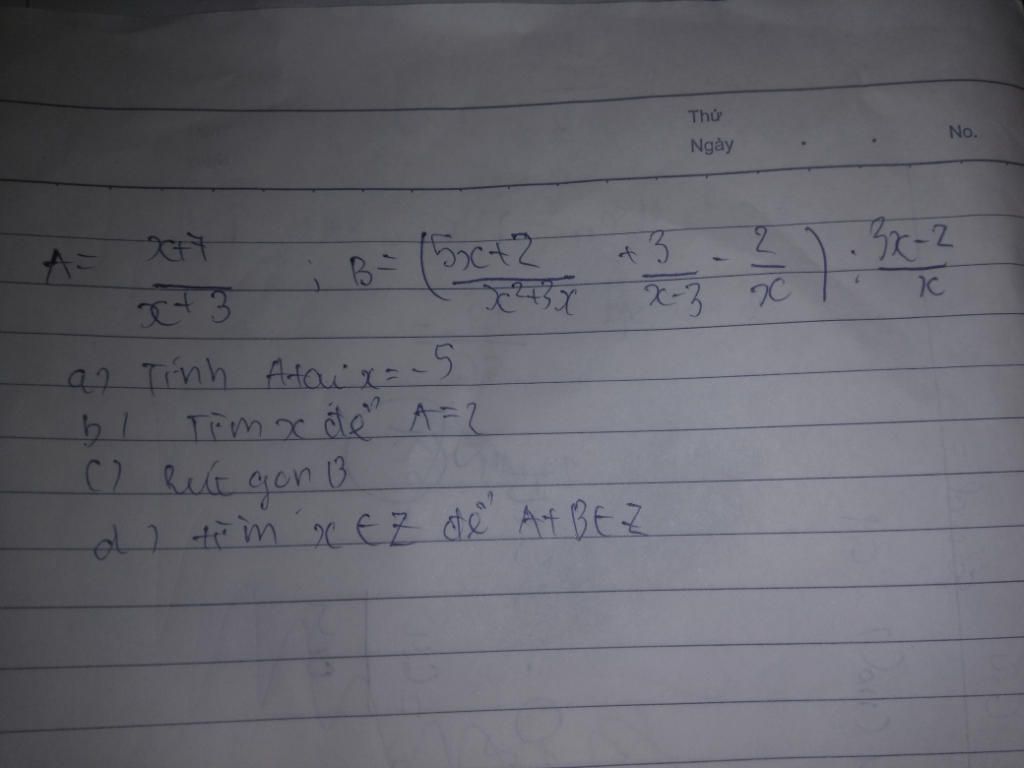 Thứ
Ngày . . No.
A = x+7 / x+3 ; B = (5x+2 / x²+3x + 3 / x-3 - 2 / x) : 3x-2 / x
a) Tính A tại x = -5
b) Tìm x để A = 2
c) Rút gọn B
d) tìm x ∈ Z để A+B ∈ Z